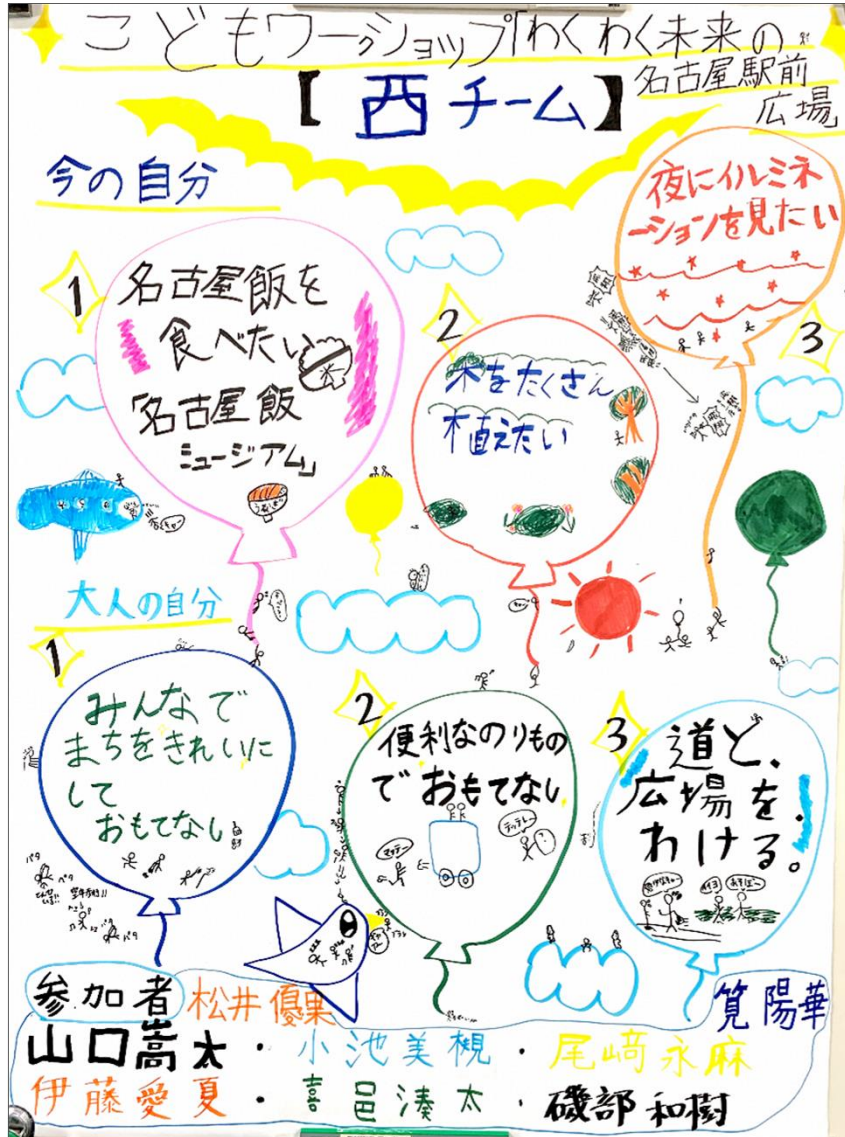 こどもワークショップ「わくわく未来の
名古屋駅前
広場
【西チーム】
今の自分
1
名古屋飯を
食べたい
「名古屋飯
ミュージアム」
2
木をたくさん
植えたい
夜にイルミネ
ーションを見たい
3
大人の自分
1
みんなで
まちをきれいに
して
おもてなし
2
便利なのりもの
でおもてなし
マッテー
テッテレー
3
道と、
広場を、
わける。
参加者
松井優果
筧陽華
山口嵩太・小池美槻・尾﨑永麻
伊藤愛夏・喜邑湊太・磯部和樹